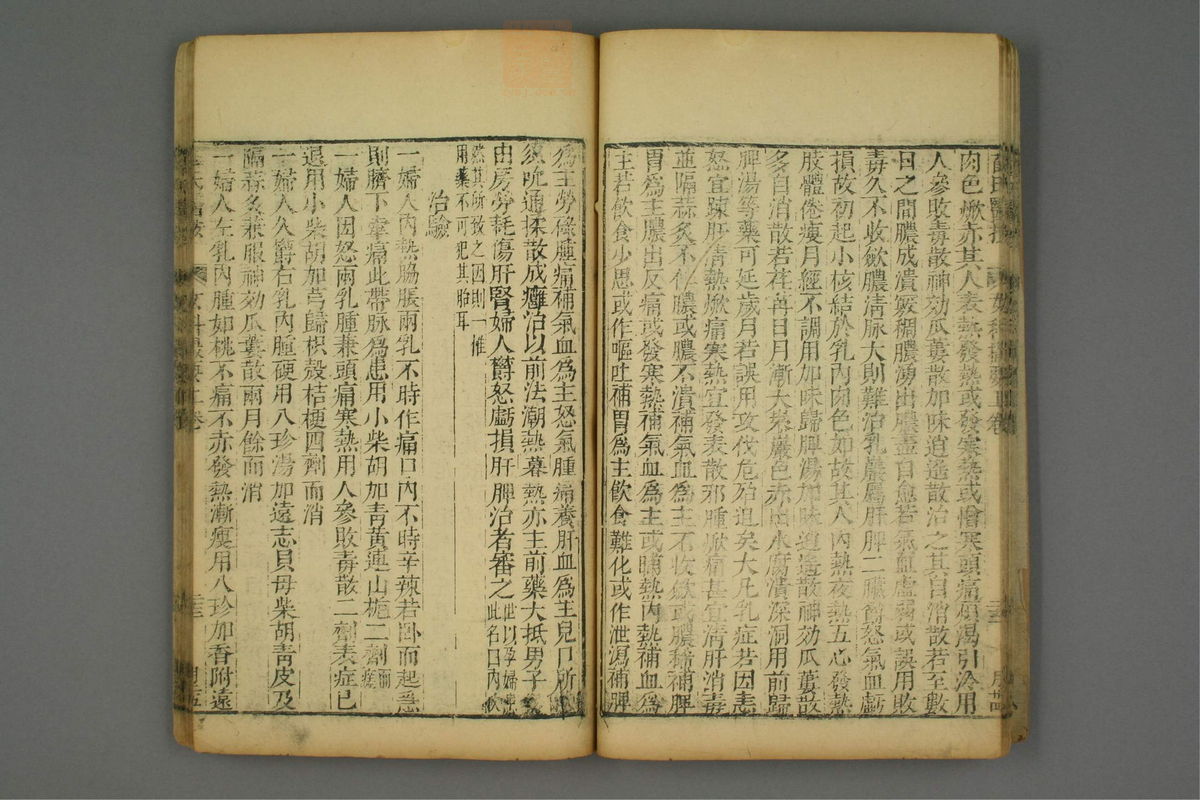 肉色焮赤其人表熱發熱或發寒熱或憎寒頭痛煩渴引冷用
人參敗毒散神効瓜蔞散加味逍遙散治之其自消散若至數
日之間膿成潰竅稠膿湧出膿盡自愈若氣血虛弱或誤用敗
毒久不收斂膿清脉大則難治乳巖屬肝脾二臟欝怒氣血虧
損故初起小核結於乳內肉色如故其人內熱夜熱五心發熱
肢體倦瘦月經不調用加味歸脾湯加味逍遙散神効瓜蔞散
多自消散若荏苒日月漸大巉巖色赤出水腐潰深洞用前歸
脾湯等藥可延歲月若誤用攻伐危殆迫矣大凡乳症若因恚
怒宜踈肝清熱焮痛寒熱宜發表散邪腫焮痛甚宜清肝消毒
並隔蒜灸不作膿或膿不潰補氣血為主不收斂或膿稀補脾
胃為主膿出反痛或發寒熱補氣血為主或晡熱內熱補血為
主若飲食少思或作嘔吐補胃為主飲食難化或作泄瀉補脾
為主勞碌腫痛補氣血為主怒氣腫痛養肝血為主兒口所
須吮通揉散成癰治以前法潮熱暮熱亦主前藥大抵男子
由房勞耗傷肝腎婦人欝怒虧損肝脾治者審之
此名口內吹
然其所致之因則一惟
用藥不可犯其胎耳
治驗
一婦人內熱脇脹兩乳不時作痛口內不時辛辣若卧而起急
則臍下牽痛此帶脉為患用小柴胡加青黃連山梔二劑而
一婦人因怒兩乳腫兼頭痛寒熱用人參敗毒散二劑表症已
退用小柴胡加芎歸枳殼桔梗四劑而消
一婦人久欝右乳內腫硬用八珍湯加遠志貝母柴胡青皮及
隔蒜灸兼服神効瓜蔞散兩月餘而消
一婦人左乳內腫如桃不痛不赤發熱漸瘦用八珍加香附遠